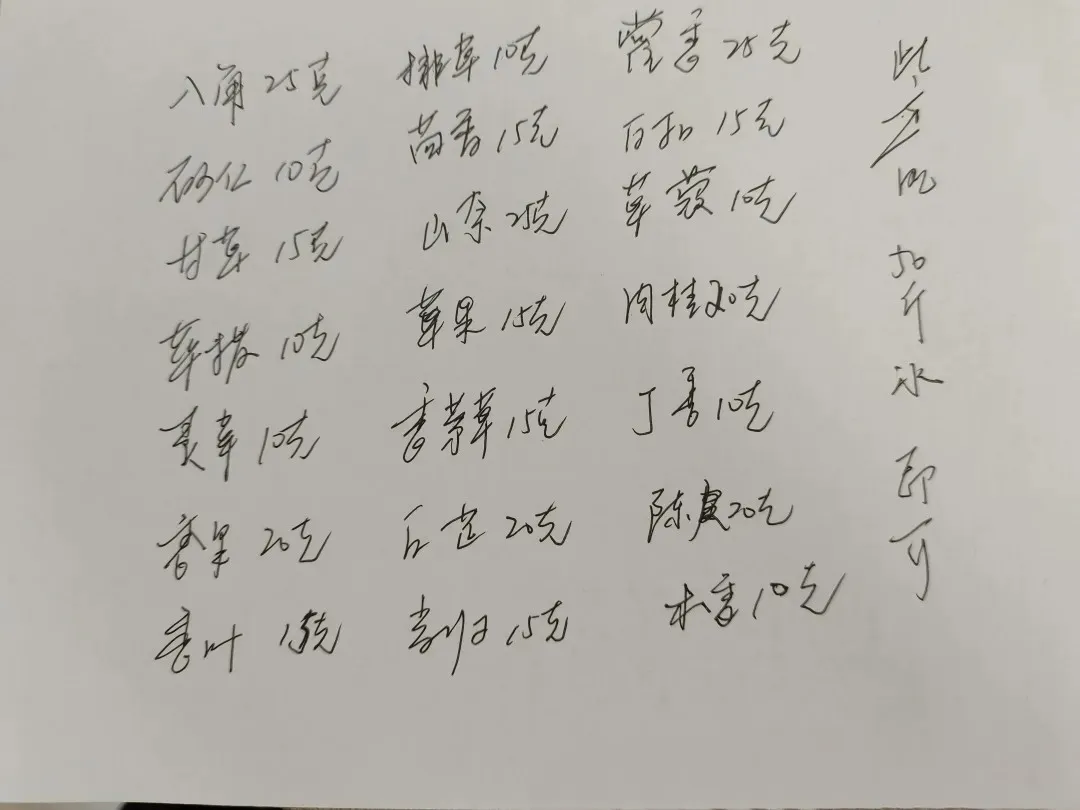 八角25克 排草10克 霍香25克
砂仁10克 茴香15克 白扣15克
甘草15克 山奈25克 草蔻10克
荜拨10克 草果15克 肉桂20克
良草10克 香茅草15克 丁香10克
香果20克 白芷20克 陈皮20克
香叶15克 当归15克 木香10克
此
50斤水即可